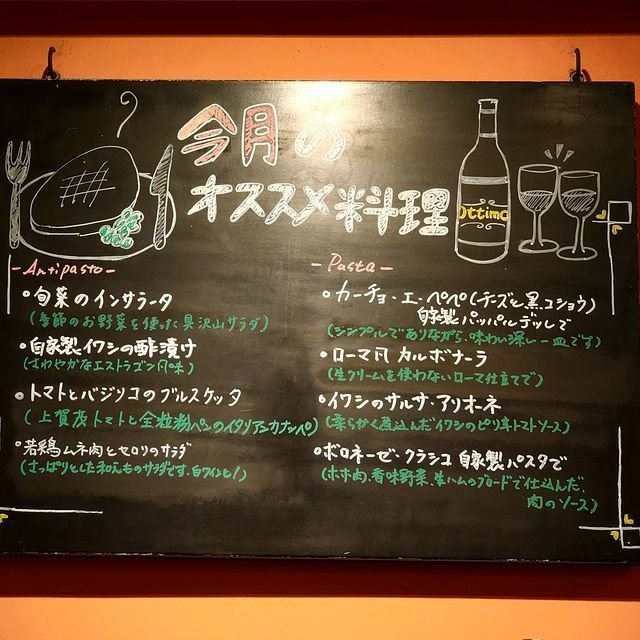 今月の
オススメ料理
Ottimo
-Antipasto-
•旬菜のインサラータ
(季節のお野菜を使った具沢山サラダ)
•自家製イワシの酢漬け
(さわやかなエストラゴン風味)
•トマトとバジリコのブルスケッタ
(上賀茂トマトと全粒粉パンのイタリアンカナッペ)
•若鶏ムネ肉とセロリのサラダ
(さっぱりとした和えものサラダです。白ワインと!)
-Pasta-
•カーチョ・エ・ペペ(チーズと黒コショウ)
自家製パッパルデッレで
(シンプルでありながら、味わい深い一皿です)
•ローマ風カルボナーラ
(生クリームを使わないローマ仕立てで)
•イワシのサルサ・アリオーネ
(柔らかく煮込んだイワシのピリ辛トマトソース)
•ボロネーゼ・クラシコ 自家製パスタで
(ホホ肉、香味野菜、生ハムのブロードで仕込んだ、
肉のソース)